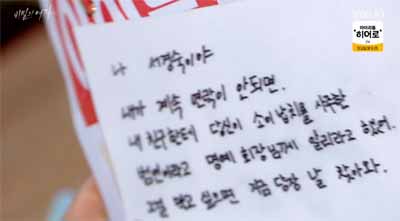 비밀의 여자
마이리틀
'히어로'
나 서경숙이야
내가 계속 연락이 안되면.
내 친구한테 당신이 소이 납치를 사주한
범인이라고 명예 회장님께 알리라고 했어.
그걸 막고 싶으면 지금 당장 날 찾아와.